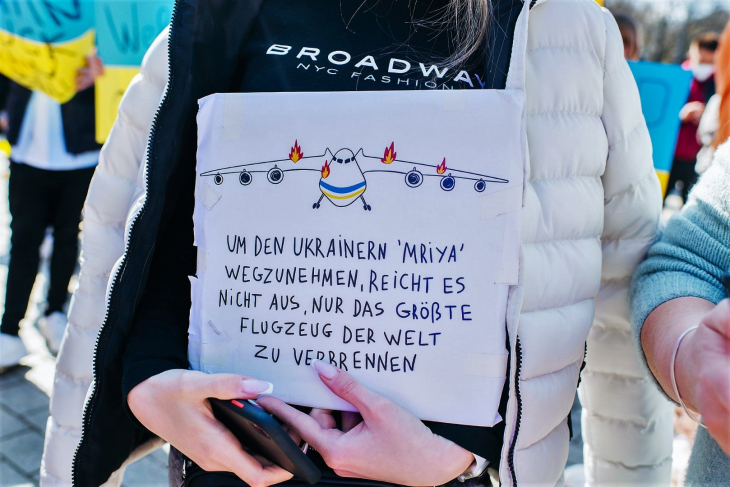 BROADWAY
NYC FASHION
UM DEN UKRAINERN 'MRIYA'
WEGZUNEHMEN, REICHT ES
NICHT AUS, NUR DAS GRÖßTE
FLUGZEUG DER WELT
ZU VERBRENNEN